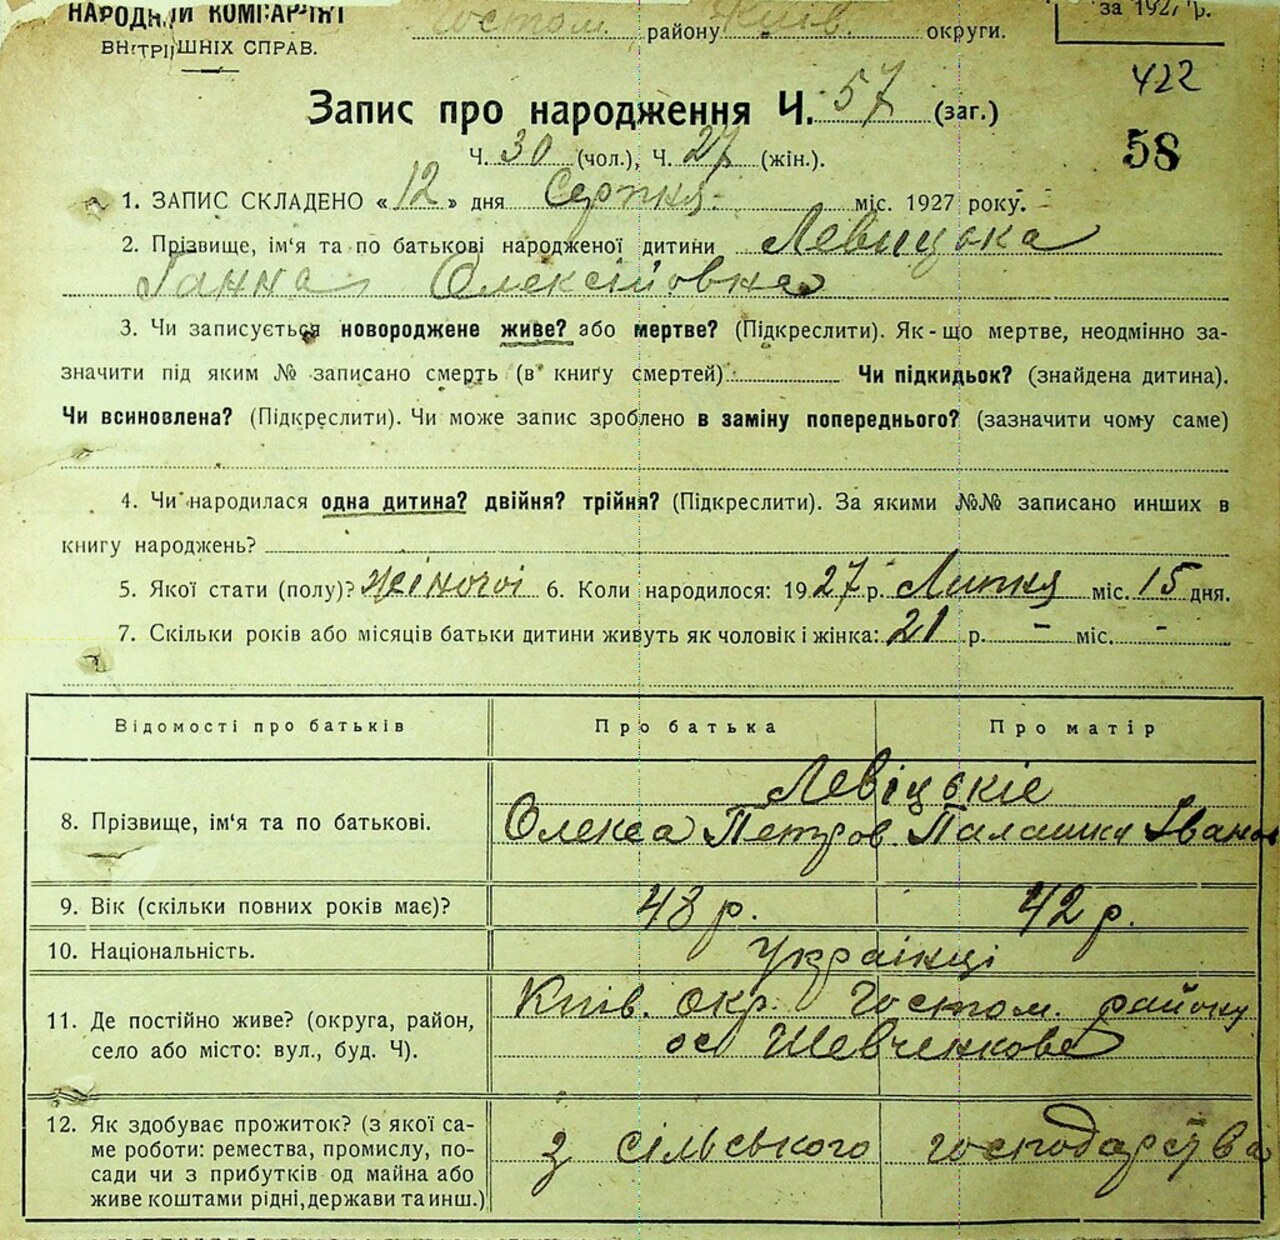 НАРОДНІЙ КОМІСАРІЯТ
ВНУТРІШНІХ СПРАВ.
Гостом. району Київ. округи.
за 1927 р.
422
Запис про народження Ч. 57 (заг.)
58
Ч. 30 (чол.), Ч. 27 (жін.).
1. ЗАПИС СКЛАДЕНО « 12 » дня Серпня міс. 1927 року.
2. Прізвище, ім‘я та по батькові народженої дитини Левицька
Ганна Олексіївна
3. Чи записується новороджене живе? або мертве? (Підкреслити). Як-що мертве, неодмінно за-
значити під яким № записано смерть (в книгу смертей) Чи підкидьок? (знайдена дитина).
Чи всиновлена? (Підкреслити). Чи може запис зроблено в заміну попереднього? (зазначити чому саме)
4. Чи народилася одна дитина? двійня? трійня? (Підкреслити). За якими №№ записано инших в
книгу народжень?
5. Якої стати (полу)? жіночоі 6. Коли народилося: 19 27 р. Липня міс. 15 дня.
7. Скільки років або місяців батьки дитини живуть як чоловік і жінка: 21 р. - міс. -
Відомості про батьків Про батька Про матір
Левіцькіе
8. Прізвище, ім‘я та по батькові. Олекса Петров. Палашка Іванов
9. Вік (скільки повних років має)? 48 р. 42 р.
10. Національність. Українці
11. Де постійно живе? (округа, район, Київ. окр. Гостом. району
село або місто: вул., буд. Ч). ос Шевченкове
12. Як здобуває прожиток? (з якої са-
ме роботи: ремества, промислу, по- з сільського господарства
сади чи з прибутків од майна або
живе коштами рідні, держави та инш.)